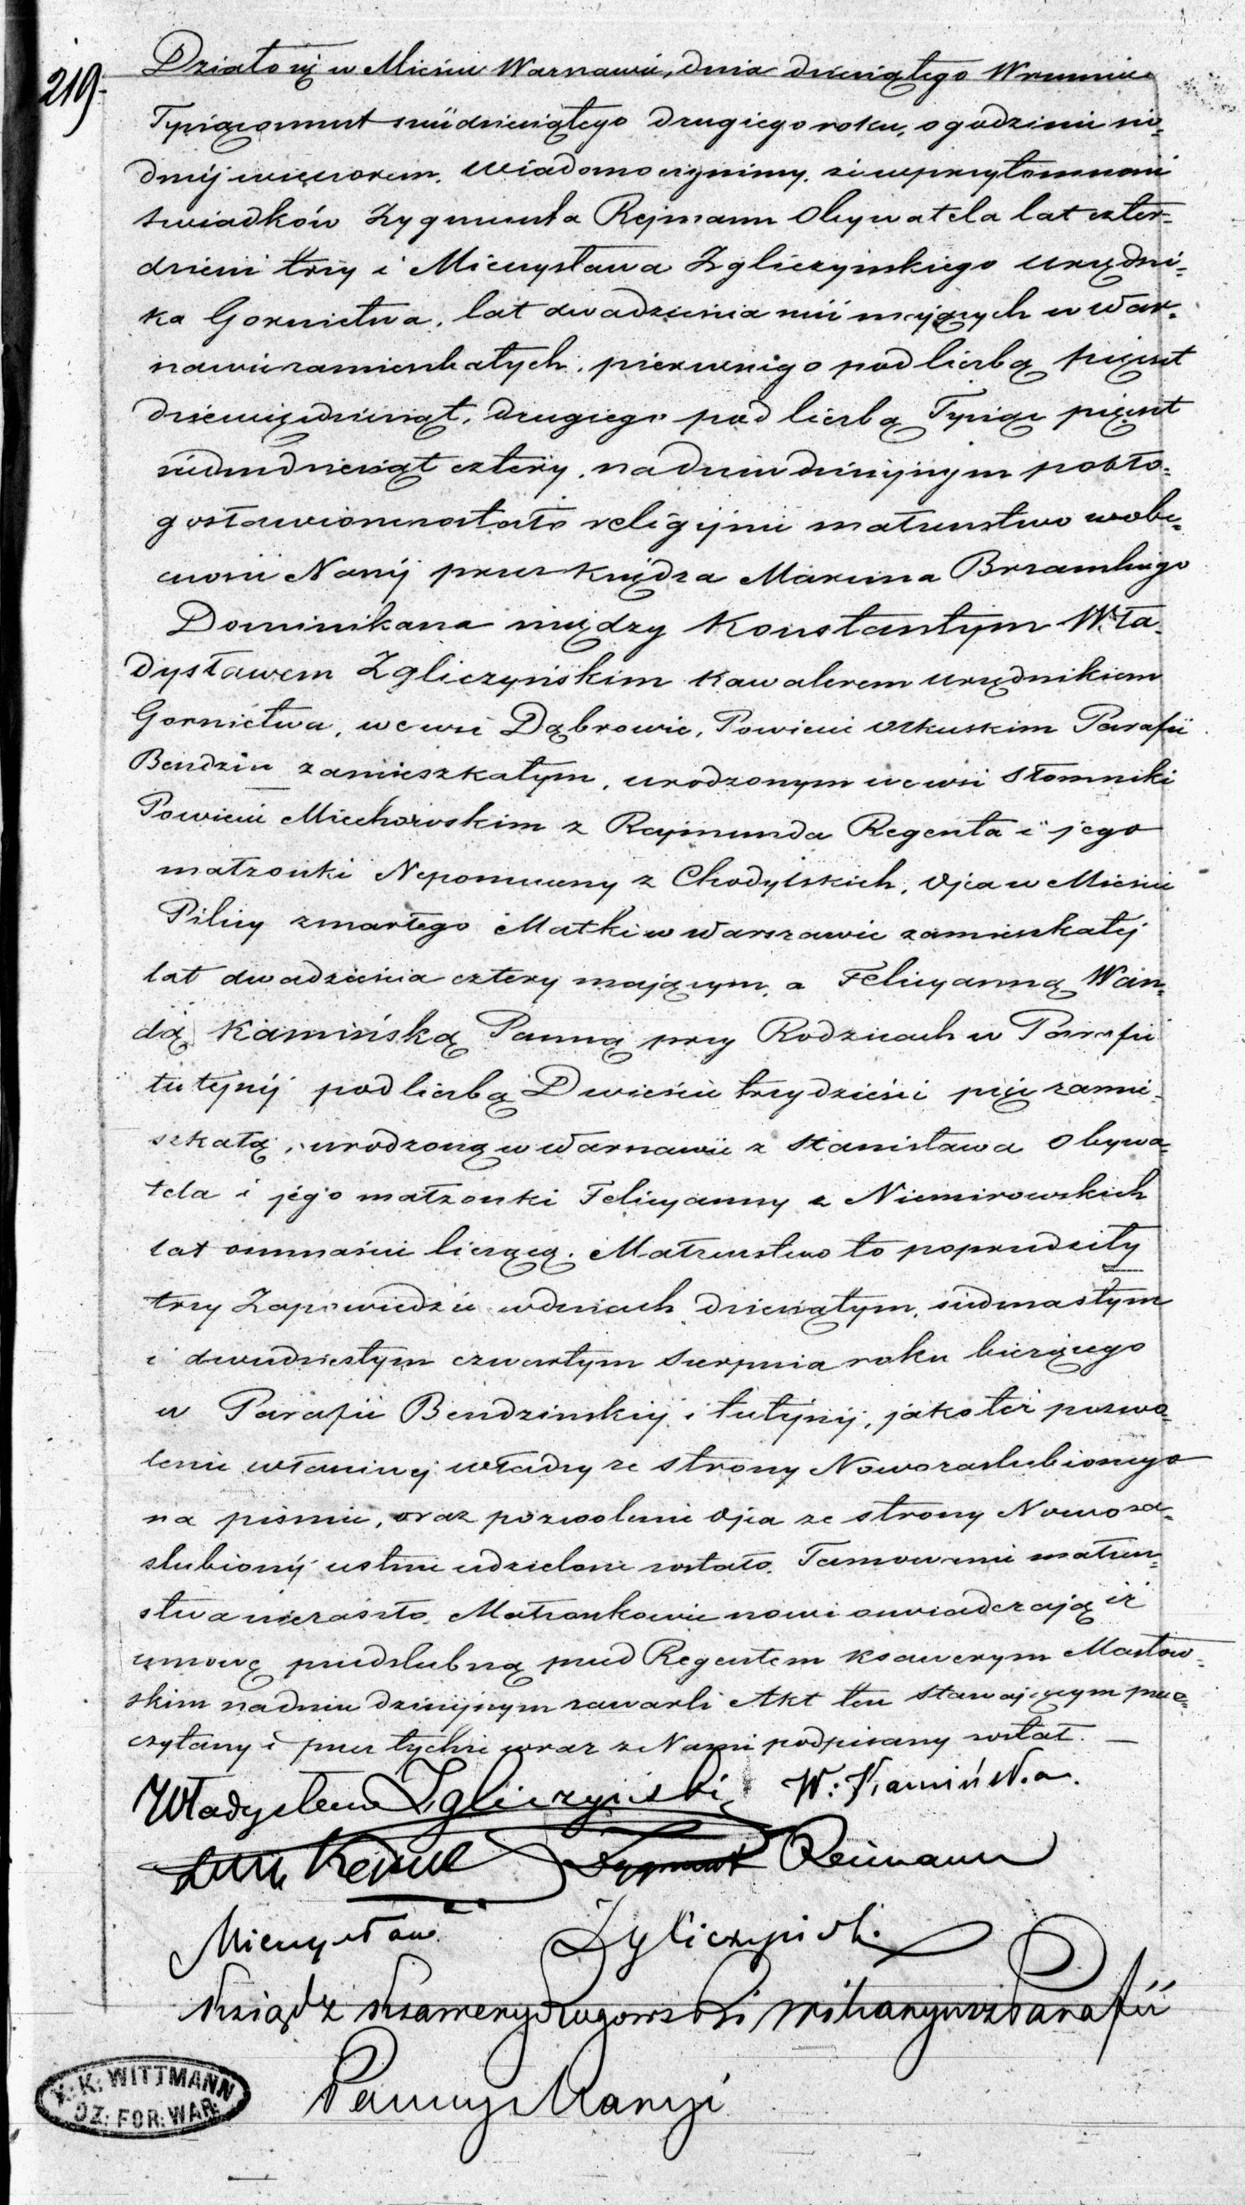 219.
Działo się w Mieście Warszawie, dnia dziesiątego Wrzesnia
Tysiącosmset siedmdziesiątego drugiego roku, o godzinie sió-
dméj wieczorem. Wiadomo czynimy, że w przytomności
świadków Zygmunta Rejmann Obywatela lat czter-
dzieści trzy i Mieczysława Zgliczyńskiego urzędni-
ka Gornictwa, lat dwadzieścia mających w War-
szawie zamieszkałych, pierwszego pod liczbą pięćset
dziewięćdziesiąt, drugiego pod liczbą Tysiąc pięćset
siedmdziesiąt cztery, na dniu dzisiejszym pobło-
gosławione zostało religijne małżeństwo w obe-
cności Naszéj przez Księdza Marcina
Dominikana między Konstantym Wła-
dysławem Zgliczyńskim Kawalerem urzędnikiem
Gornictwa, we wsi Dąbrowie, Powiecie Olkuskim Parafii
Bendzin zamieszkałym, urodzonym we wsi Słomniki
Powiecie Miechowskim z Rajmunda Regenta i jego
małżonki Nepomuceny z Chodylskich, Ojca w Mieście
Pilicy zmarłego Matki w Warszawie zamieszkałej
lat dwadzieścia cztery mającym, a Felicyanną Wan-
dą Kamińską Panną przy Rodzicach w Parafii
tutejszéj pod liczbą Dwieście trzydzieści pięć zamie-
szkałą, urodzoną w Warszawie z Stanisława Obywa-
tela i jego małżonki Felicyanny z Niemirowskich
lat osmnaście liczącą. Małżeństwo to poprzedziły
trzy Zapowiedzie w dniach dziesiątym, siedmnastym
i dwudziestym czwartym Sierpnia roku bieżącego
w Parafii Bendzinskiéj i tutejszéj, jako też pozwo-
lenie właściwej władzy ze strony Nowozaślubionego
na piśmie, oraz pozwolenie Ojca ze strony Nowoza-
ślubionéj ustnie udzielone zostało. Tamowanie małżeń-
stwa nie zaszło. Małżonkowie nowi oswiadczają iż
umowę przedślubną przed Regentem Ksawerym Masłow-
skim na dniu dzisiejszym zawarli Akt ten stawającym prze-
czytany i przez tychże wraz z Nami podpisany został.
Władysław Zgliczyński W: Kamińska.
Zygmunt Reimann
Mieczysław Zgliczyński.
Ksiądz Ksawery Rogowski Wikaryusz Parafii
Panny Maryi
X. K. WITTMANN
DZ. FOR. WAR.